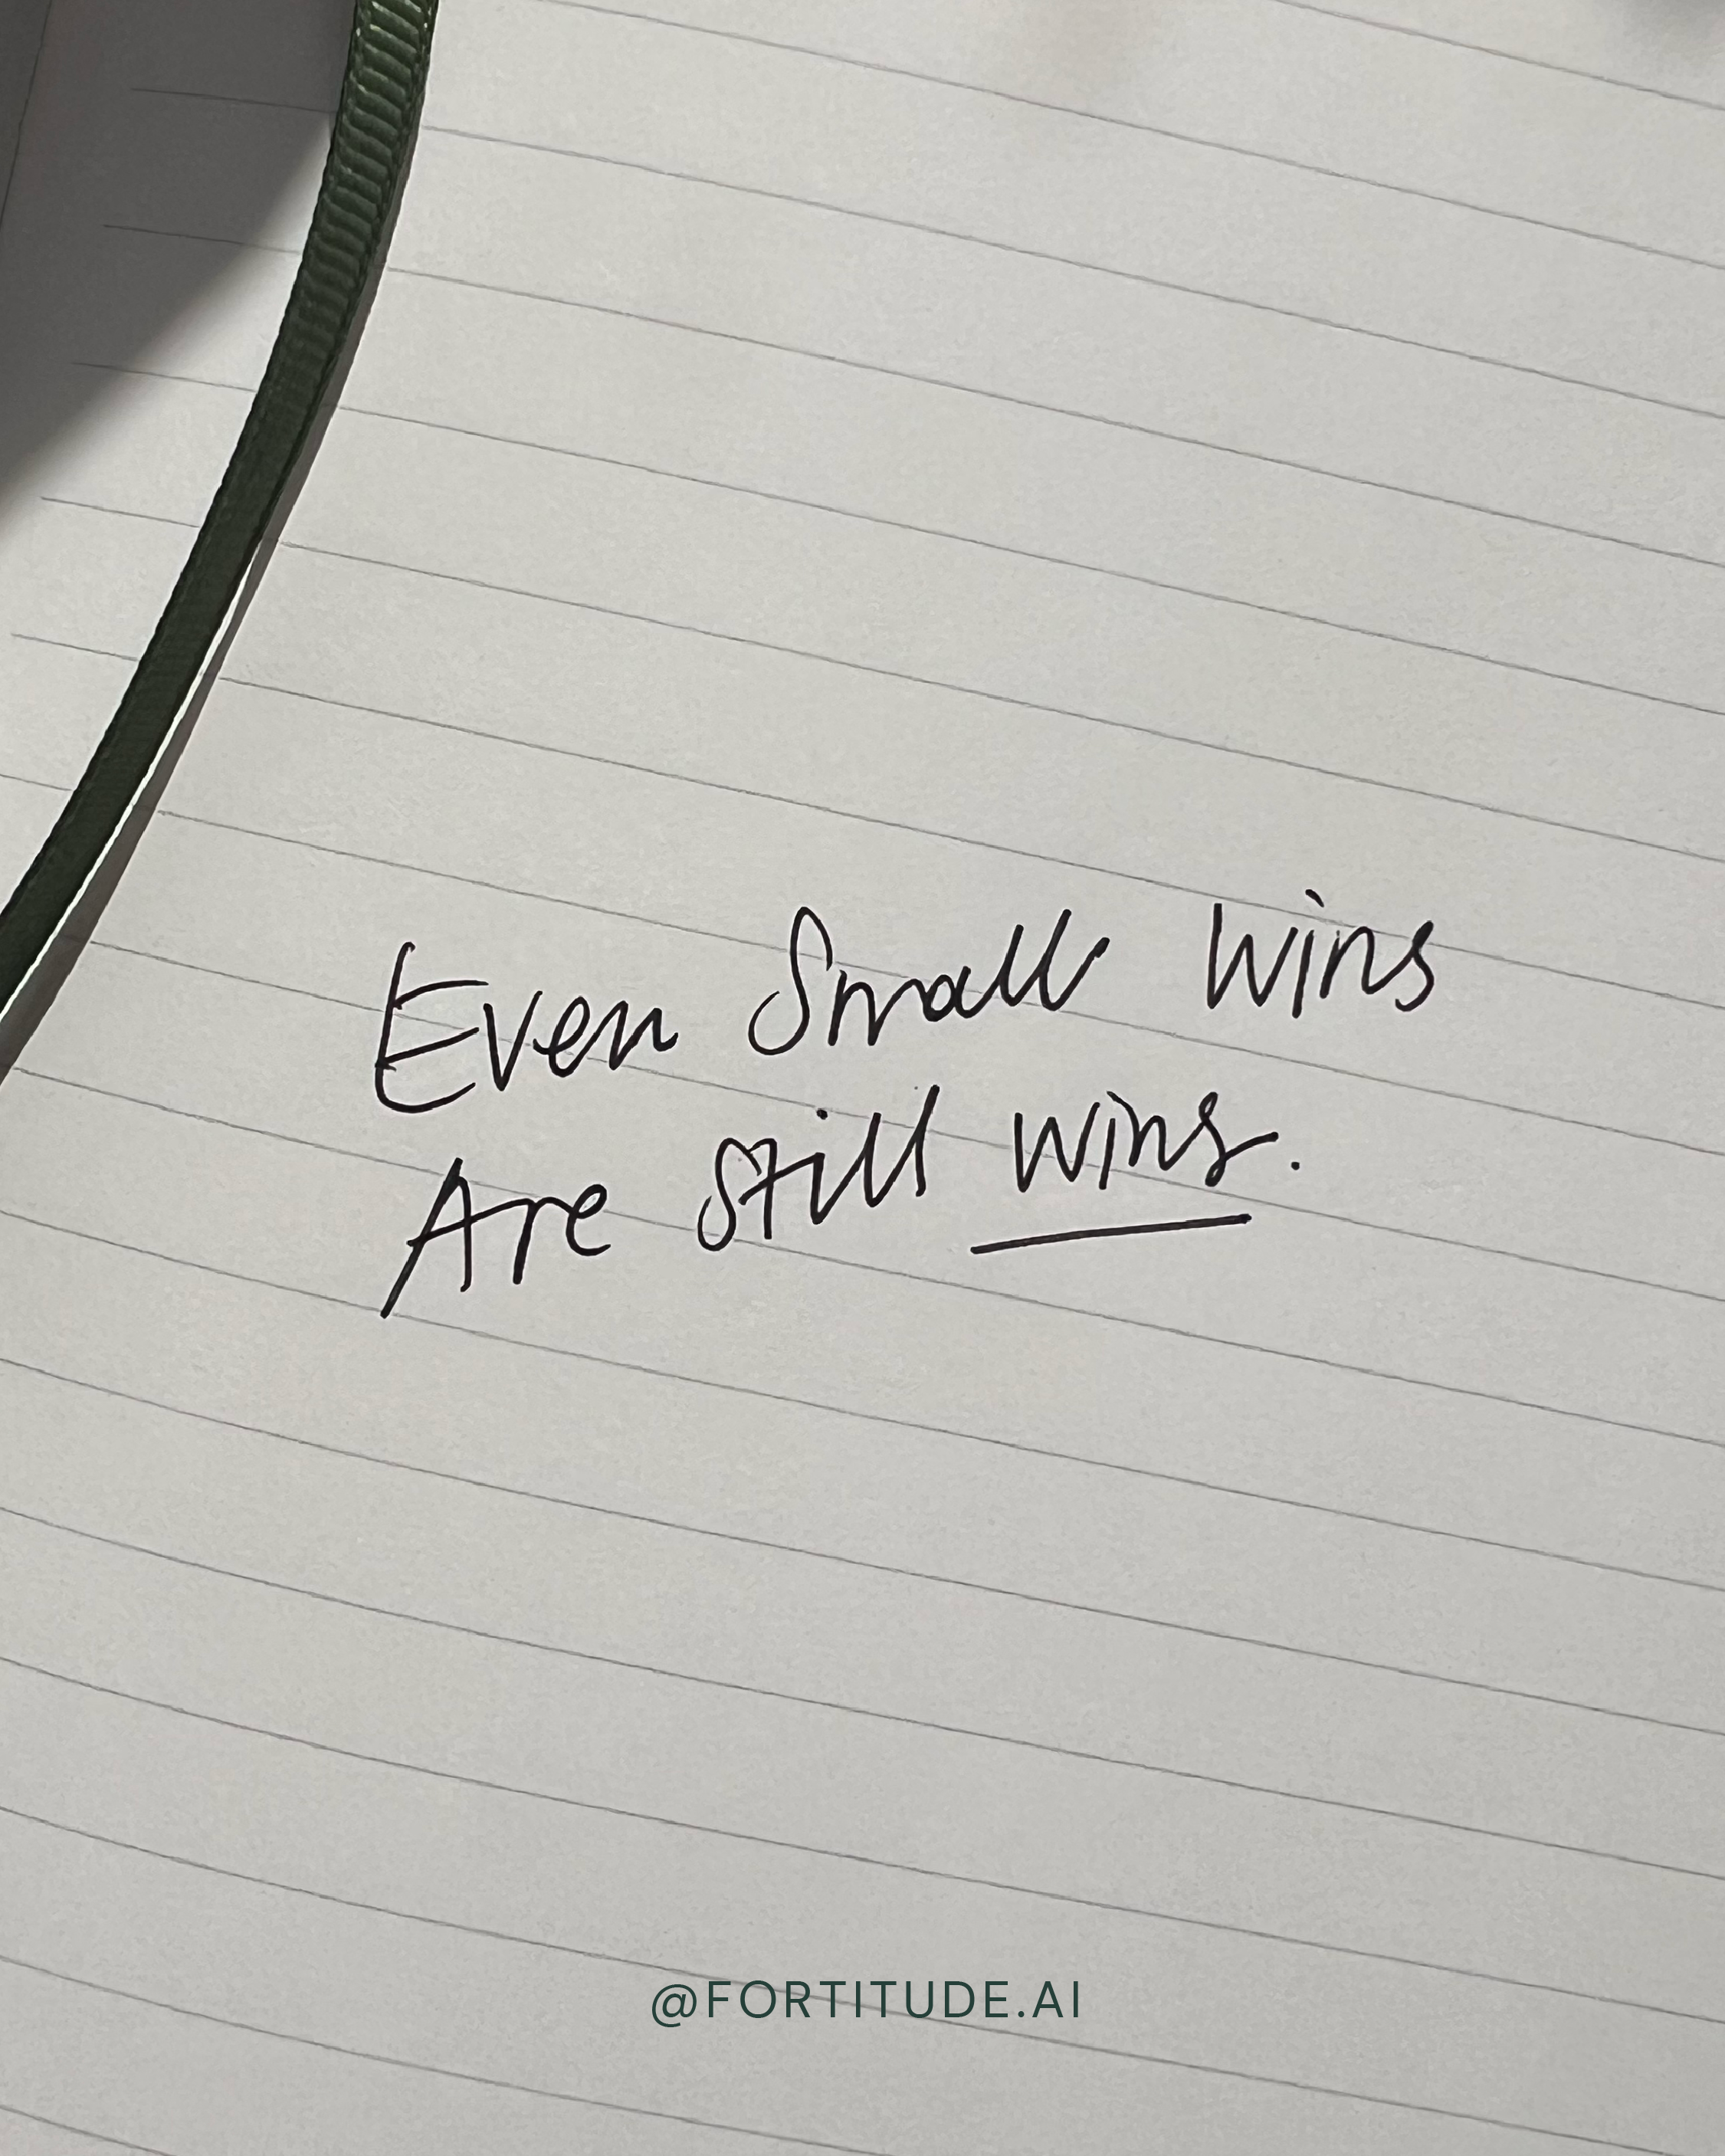 Even Small Wins
Are Still Wins.
@FORTITUDE.AI